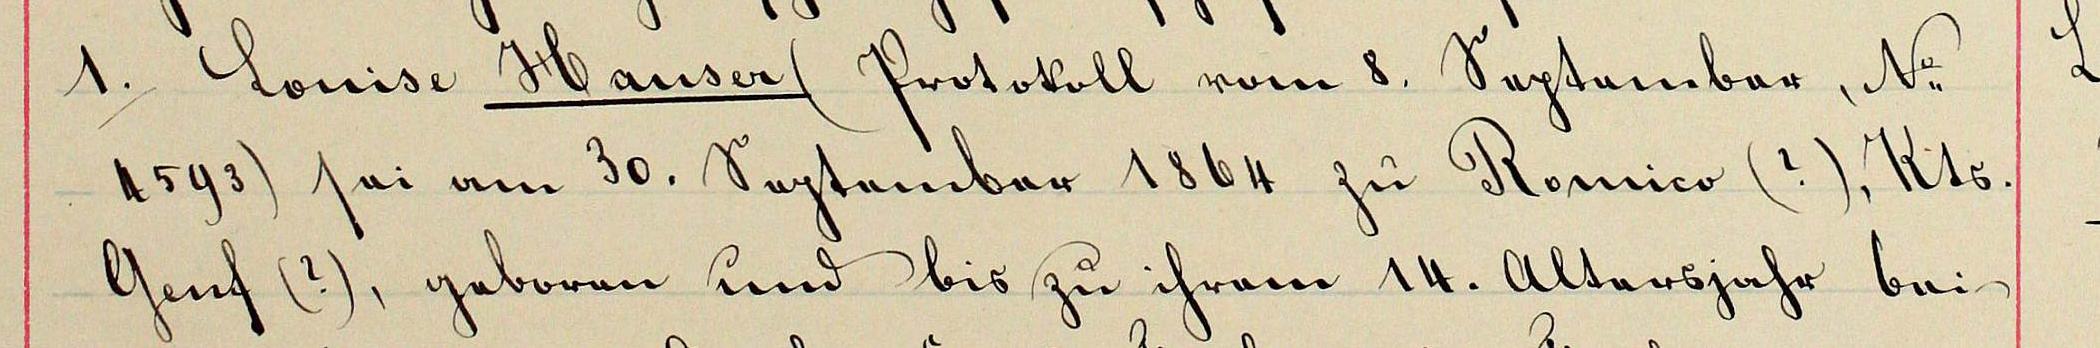 1. Louise Hauser (Protokoll vom 8. September, No
4593) sei am 30. September 1864 zu Romico (?), Kts.
Genf (?), geboren und bis zu ihrem 14. Altersjahr bei